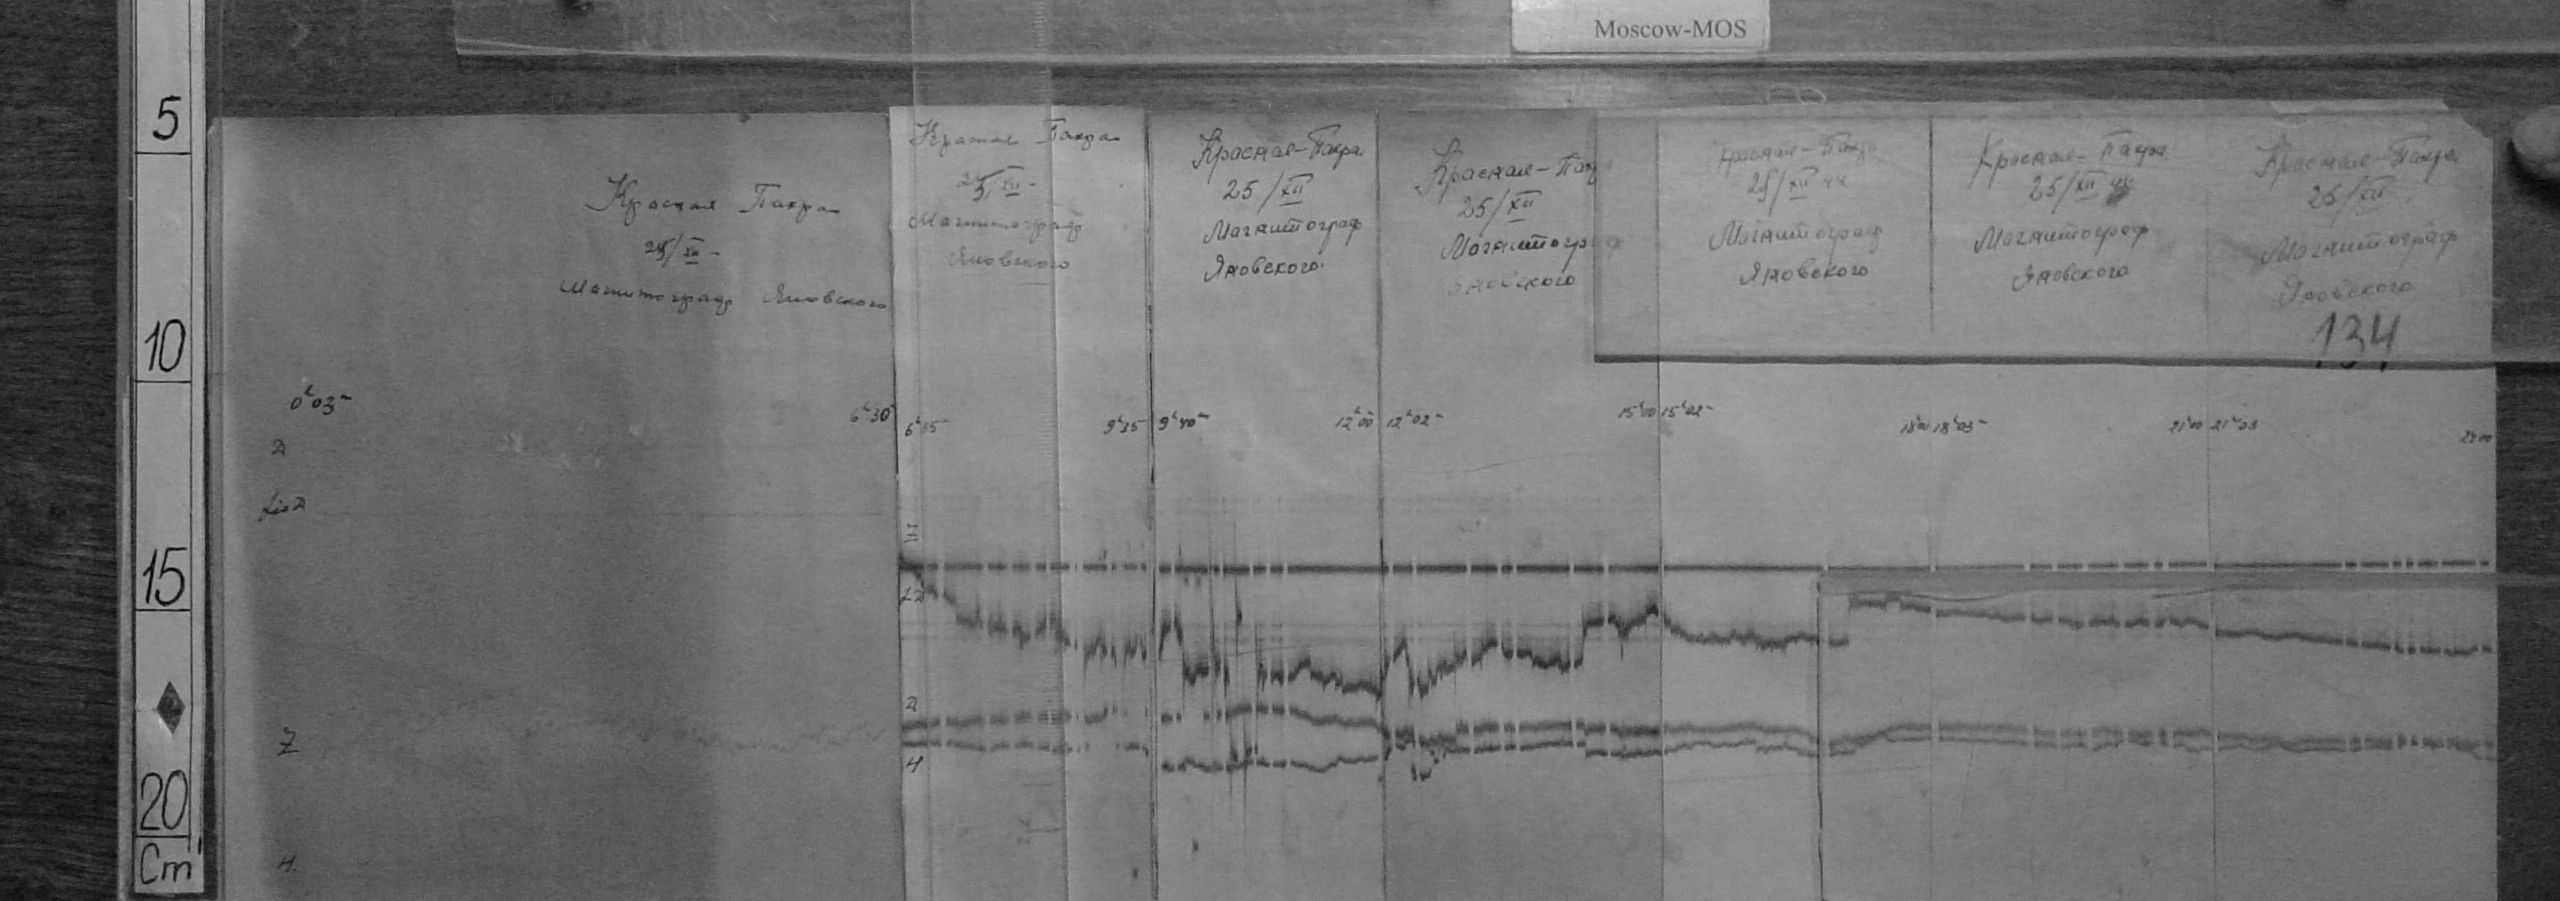 Moscow-MOS
5
10
15
20
Cm
Красная Пахра
25/XII -
Магнитограф Яновского
Красная Пахра
25/XII -
Магнитограф
Яновского
Красная-Пахра
25/XII
Магнитограф
Яновского
Красная-Пах
25/XII
Магнитогра
Яновского
Красная-Пахр
25/XII 44
Магнитограф
Яновского
Красная-Пахра
25/XII 44
Магнитограф
Яновского
Красная-Пахра
25/XII
Магнитограф
Яновского
134
0h03m
6h30
6h35
9h35
9h40m
12h00
12h02m
15h00
15h02m
18h00
18h03m
21h00
21h03
24h00
D
Z
H
D
H